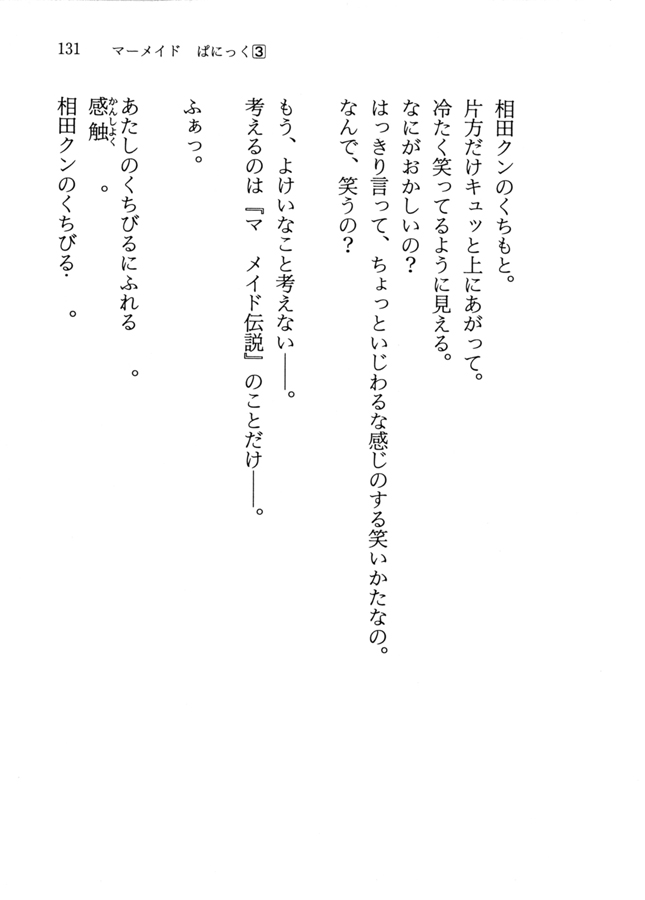 131 マーメイド ぱにっく3
相田クンのくちもと。
片方だけキュッと上にあがって。
冷たく笑ってるように見える。
なにがおかしいの？
はっきり言って、ちょっといじわるな感じのする笑いかたなの。
なんで、笑うの？
もう、よけいなこと考えない――。
考えるのは『マ　メイド伝説』のことだけ――。
ふぁっ。
あたしのくちびるにふれる　。
感触　。
かんしょく
相田クンのくちびる　。